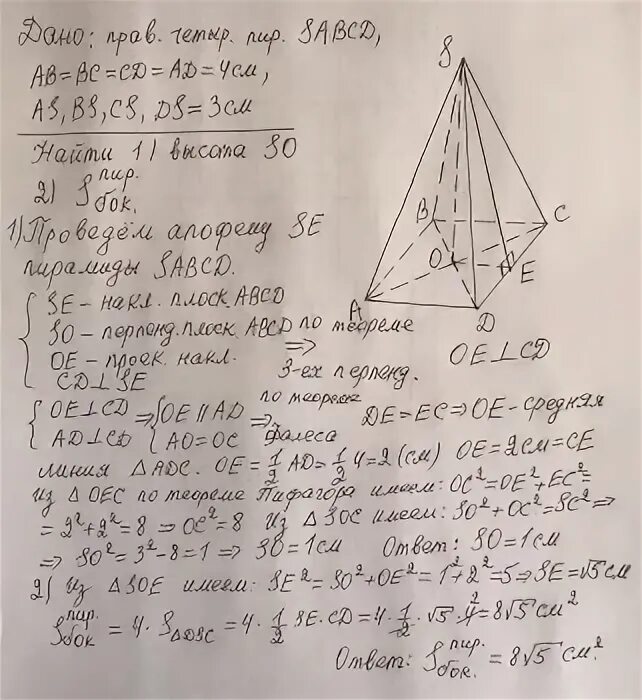 Дано: прав. четыр. пир. SABCD,
AB=BC=CD=AD=4см,
AS, BS, CS, DS=3см
Найти 1) высота SO
2) S бок. пир.
1) Проведём апофему SE
пирамиды SABCD.
SE – накл. плоск. ABCD
SO – перпенд. плоск. ABCD по теореме
OE – проек. накл. ⇒ 3-ех перпенд. OE⊥CD
CD⊥SE
{OE⊥CD ⇒ {OE∥AD ⇒ по теореме DE=EC⇒OE-средняя
{AD⊥CD {AO=OC Фалеса
линия △ADC. OE=1/2 AD=1/2 4=2 (см) OE=2см=CE
Из △OEC по теореме Пифагора имеем: OC²=OE²+EC²=
=2²+2²=8 ⇒ OC²=8 Из △SOC имеем: SO²+OC²=SC² ⇒
⇒ SO²=3²-8=1 ⇒ SO=1см Ответ: SO=1см
2) Из △SOE имеем: SE²=SO²+OE²=1²+2²=5⇒SE=√5 см
S бок пир. = 4·S△DSC = 4·1/2 SE·CD=4·1/2·√5·4=8√5 см²
2
Ответ: S бок. пир. = 8√5 см.²
S
B
C
O
E
A
D